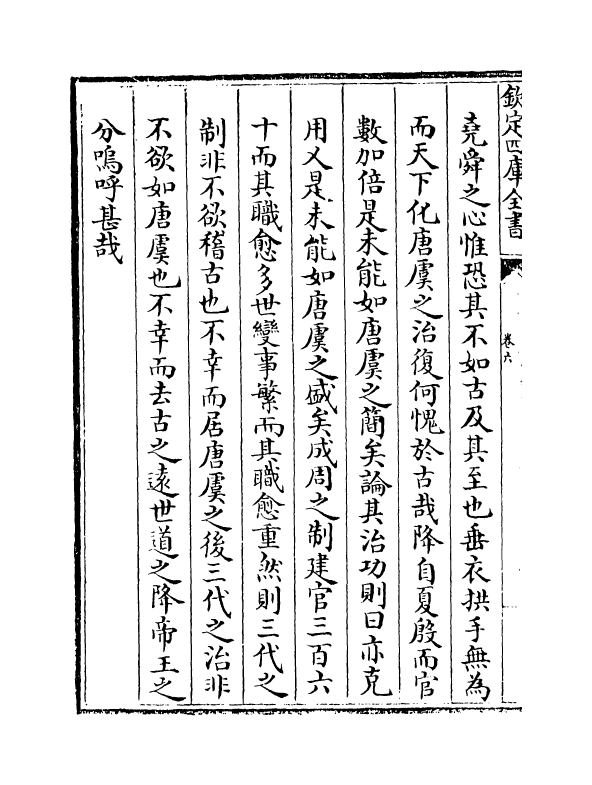 欽定四庫全書
卷六
堯舜之心惟恐其不如古及其至也垂衣拱手無為
而天下化唐虞之治復何愧於古哉降自夏殷而官
數加倍是未能如唐虞之簡矣論其治功則曰亦克
用乂是未能如唐虞之盛矣成周之制建官三百六
十而其職愈多世變事繁而其職愈重然則三代之
制非不欲稽古也不幸而居唐虞之後三代之治非
不欲如唐虞也不幸而去古之遠世道之降帝王之
分嗚呼甚哉